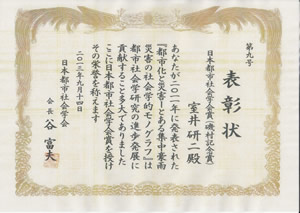 第九号
表彰状
日本都市社会学会賞(磯村記念賞)
室井研二殿
あなたが二〇一一年に発表された
『都市化と災害―とある集中豪雨
災害の社会学的モノグラフ』は
都市社会学研究の進歩発展に
貢献すること多大でありました
ここに日本都市社会学会賞を授け
その栄誉を称えます
二〇一三年九月十四日
日本都市社会学会
会長 谷富夫